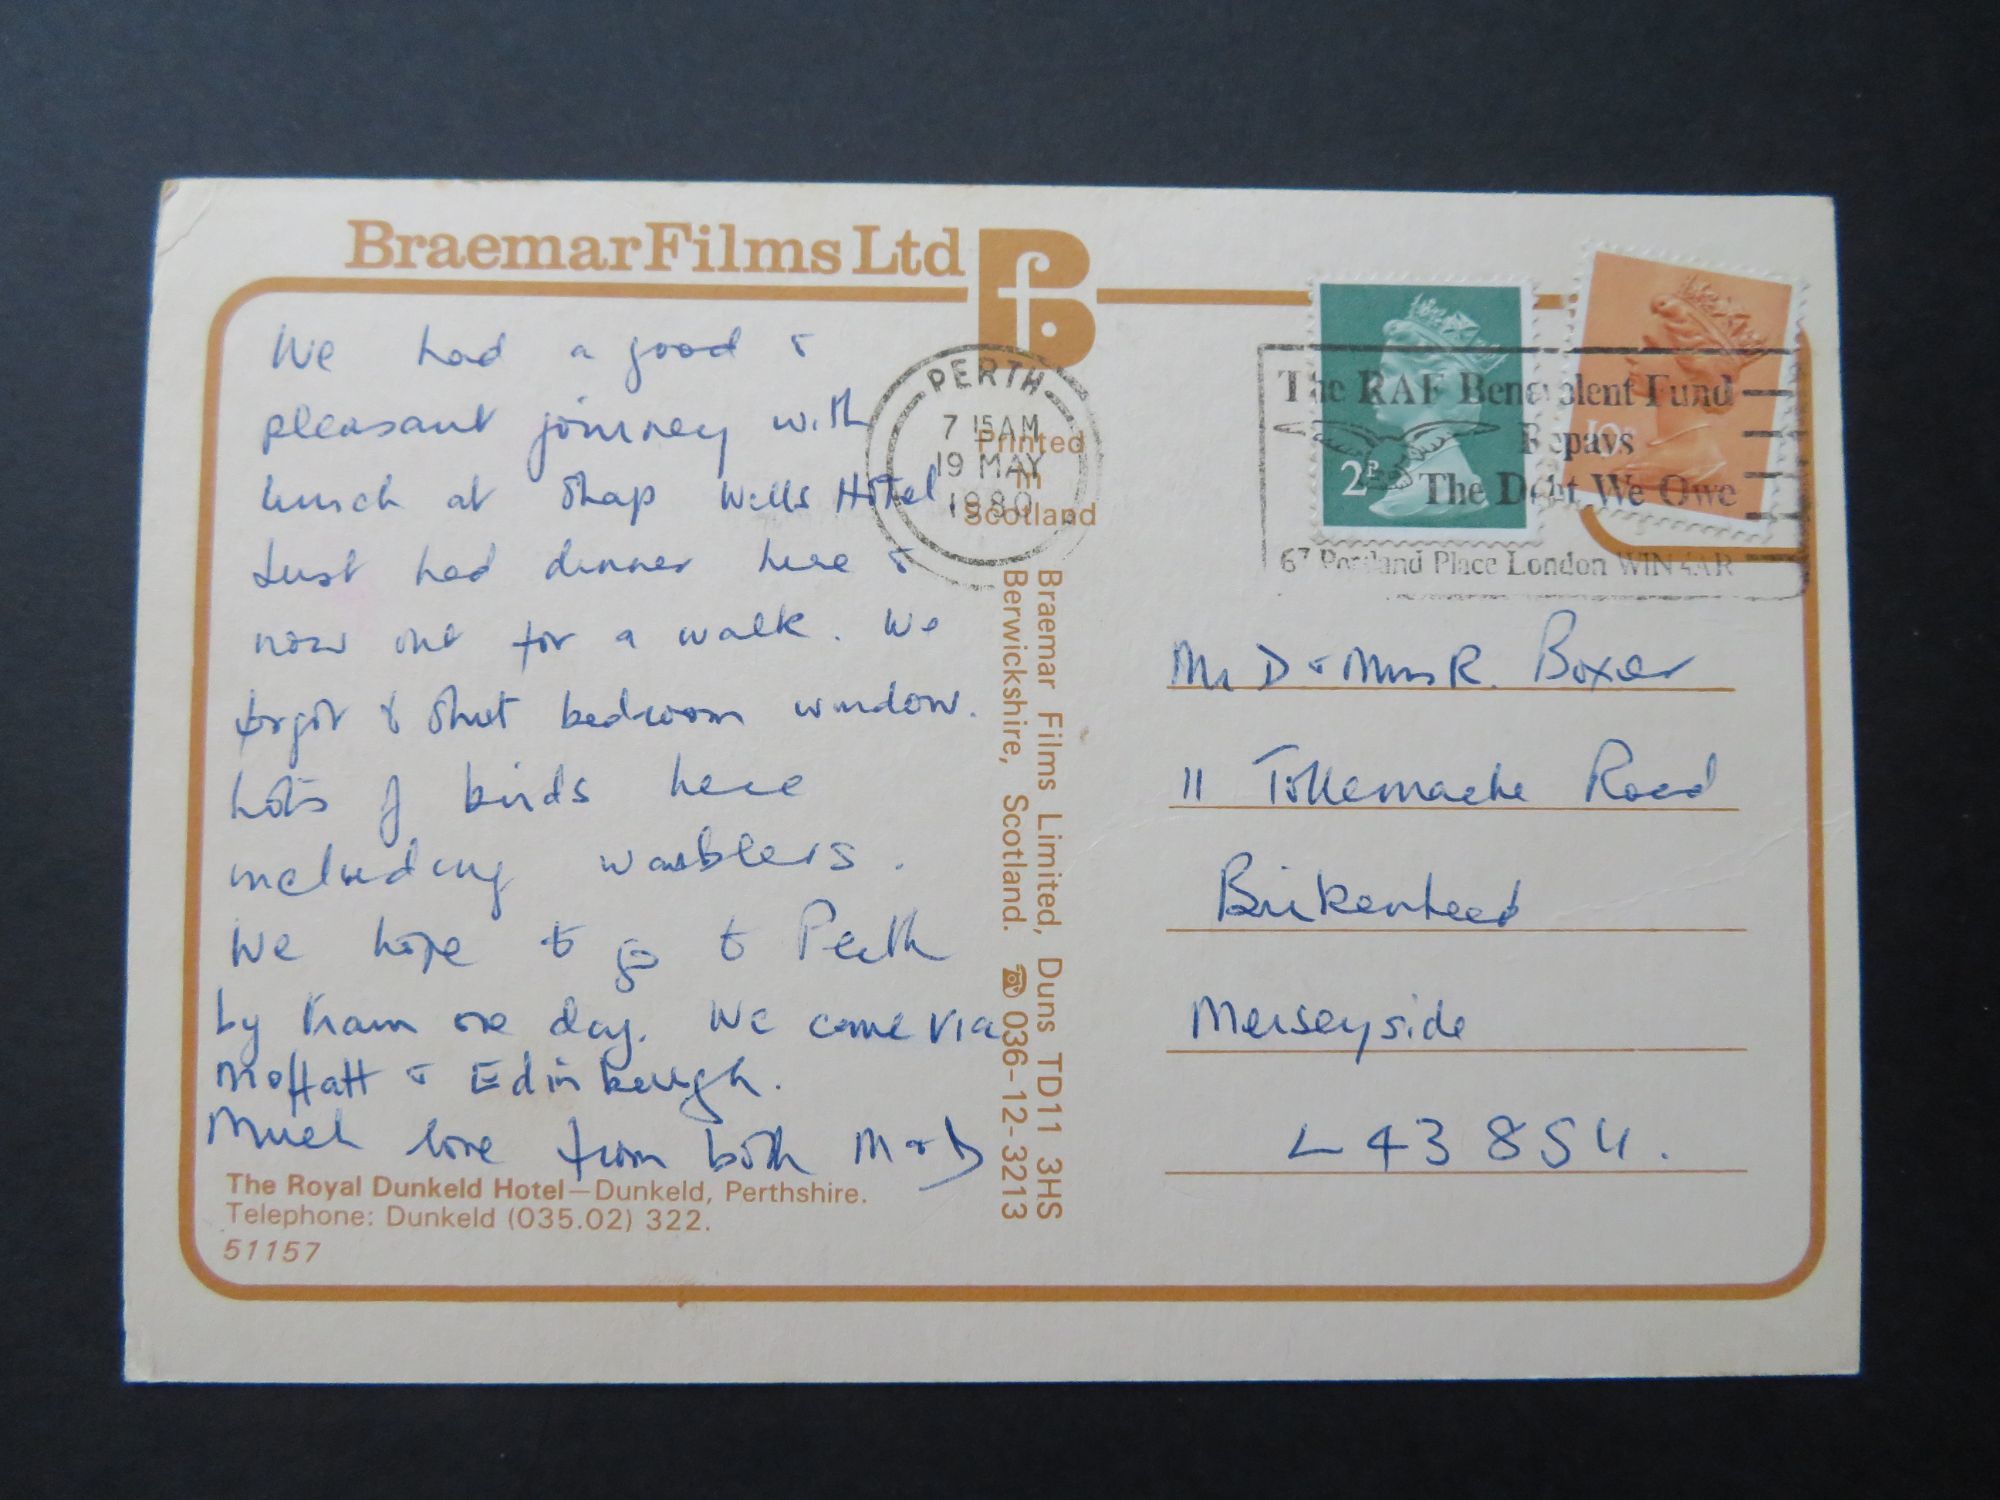 Braemar Films Ltd
We had a good &
pleasant journey with
lunch at Shap Wells Hotel
Just had dinner here &
now out for a walk. We
forgot to shut bedroom window.
Lots of birds here
including warblers.
We hope to go to Perth
by train one day. We came via
Moffatt & Edinburgh.
Much love from both M & D
The Royal Dunkeld Hotel—Dunkeld, Perthshire.
Telephone: Dunkeld (035.02) 322.
51157
PERTH
7 15 AM
19 MAY
1980
Printed
in
Scotland
Braemar Films Limited, Duns TD11 3HS
Berwickshire, Scotland. ☎ 036-12-3213
2P
10P
The RAF Benevolent Fund
Repays
The Debt We Owe
67 Portland Place London W1N 4AR
Mr D & Mrs R. Boxer
11 Tollemache Road
Birkenhead
Merseyside
L43 8SU.